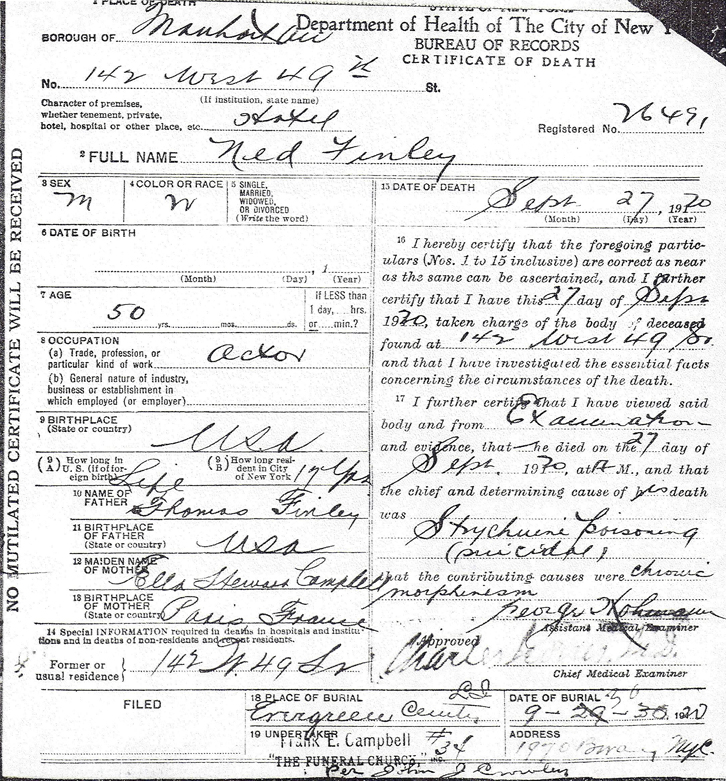 1 PLACE OF DEATH
STATE OF NEW YORK
Department of Health of The City of New Y
BUREAU OF RECORDS
CERTIFICATE OF DEATH
BOROUGH OF Manhattan
No. 142 West 49th St.
(If institution, state name)
Character of premises,
whether tenement, private,
hotel, hospital or other place, etc. Hotel
Registered No. 26491
2 FULL NAME Ned Finley
3 SEX M
4 COLOR OR RACE W
5 SINGLE,
MARRIED,
WIDOWED,
OR DIVORCED
(Write the word)
6 DATE OF BIRTH
, 1
(Month) (Day) (Year)
7 AGE 50 yrs. mos. ds.
If LESS than
1 day, hrs.
or min.?
8 OCCUPATION
(a) Trade, profession, or
particular kind of work Actor
(b) General nature of industry,
business or establishment in
which employed (or employer)
9 BIRTHPLACE
(State or country) USA
(9 A) How long in
U. S. (if of for-
eign birth) Life
(9 B) How long resi-
dent in City
of New York 17 yrs
10 NAME OF
FATHER Thomas Finley
11 BIRTHPLACE
OF FATHER
(State or country) USA
12 MAIDEN NAME
OF MOTHER Ella Campbell
13 BIRTHPLACE
OF MOTHER
(State or country) Paris France
14 Special INFORMATION required in deaths in hospitals and institu-
tions and in deaths of non-residents and recent residents.
Former or
usual residence 142 W 49 St
15 DATE OF DEATH
Sept 27, 1920
(Month) (Day) (Year)
16 I hereby certify that the foregoing partic-
ulars (Nos. 1 to 15 inclusive) are correct as near
as the same can be ascertained, and I further
certify that I have this 27 day of Sept
1920, taken charge of the body of deceased
found at 142 West 49 St
and that I have investigated the essential facts
concerning the circumstances of the death.
17 I further certify that I have viewed said
body and from Examination
and evidence, that he died on the 27 day of
Sept. 1920, at A M., and that
the chief and determining cause of his death
was Strychnine Poisoning
(suicidal)
that the contributing causes were chronic
morphinism
George
Assistant Medical Examiner
Approved
Charles
Chief Medical Examiner
FILED
18 PLACE OF BURIAL
L.I.
Evergreen Cemty
DATE OF BURIAL 30
9-29-30, 1920
19 UNDERTAKER
Frank E. Campbell
"THE FUNERAL CHURCH" INC.
#34
Per John J
ADDRESS
1970 Bway NYC
NO MUTILATED CERTIFICATE WILL BE RECEIVED